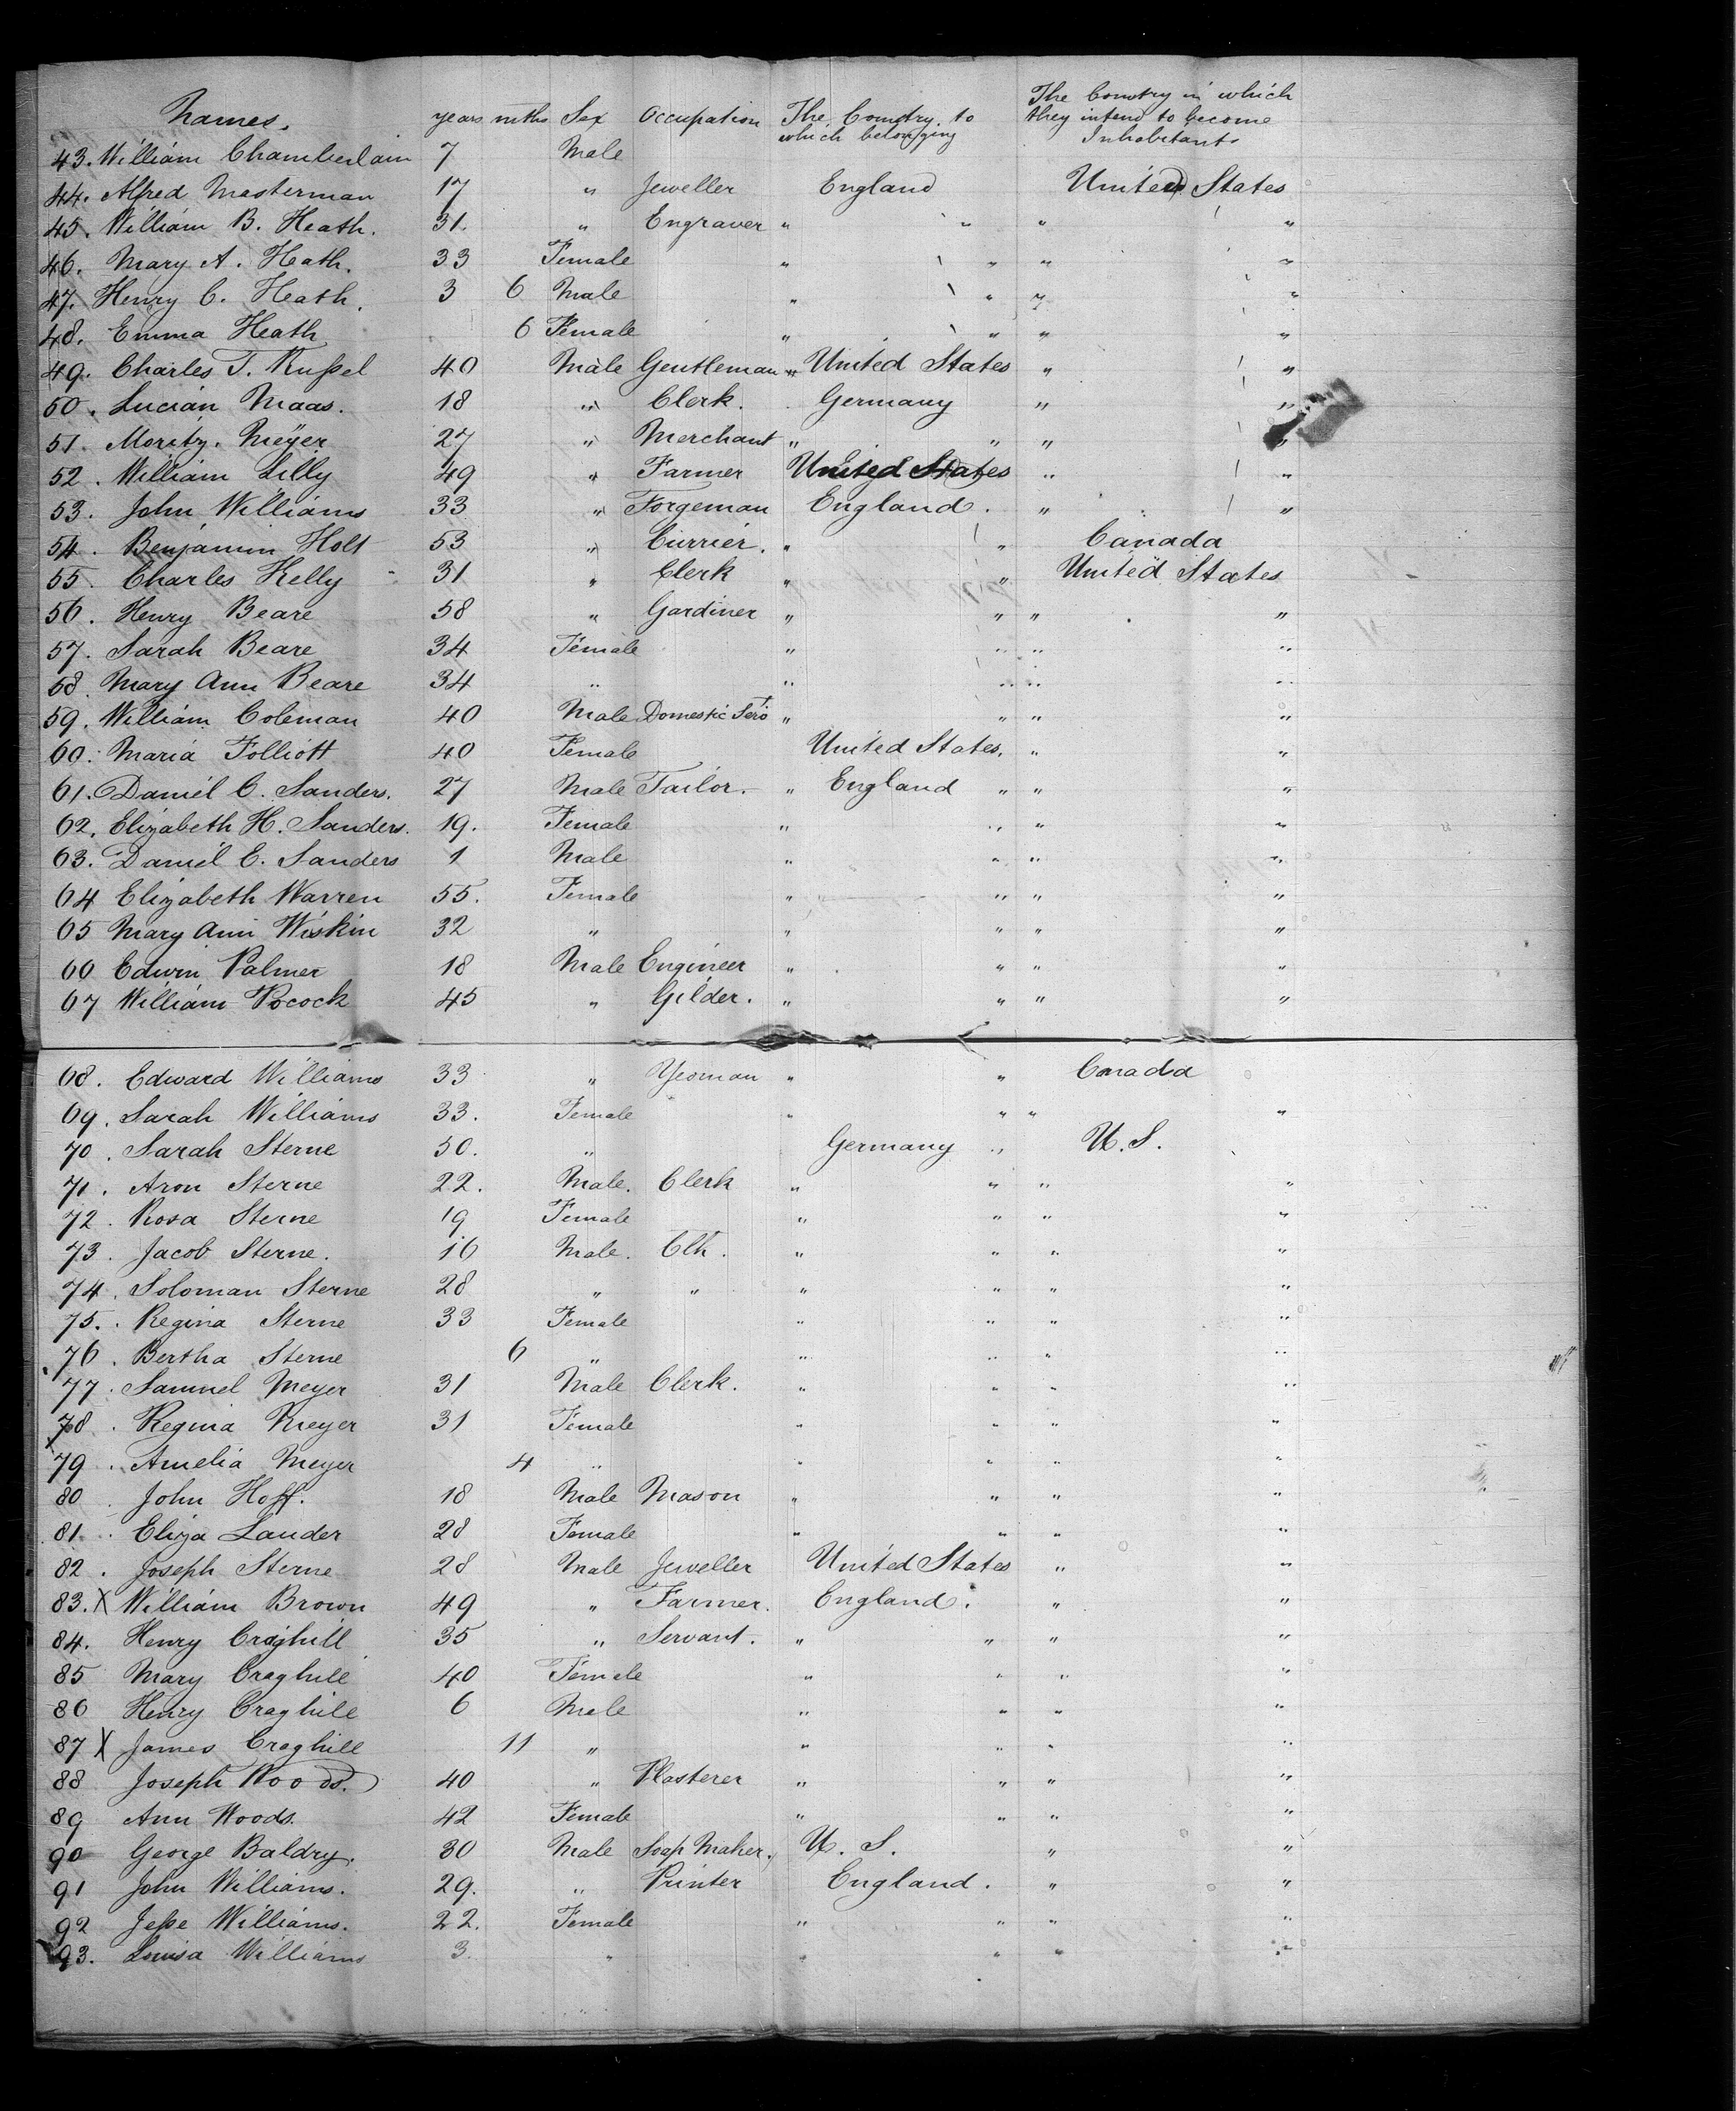 Names. years mths Sex Occupation The Country to which belonging The Country in which they intend to become Inhabitants
43. William Chamberlain 7 Male
44. Alfred Masterman 17 " Jeweller England United States
45. William B. Heath. 31. " Engraver " " " "
46. Mary A. Heath. 33 Female " " " "
47. Henry C. Heath. 3 6 Male " " " "
48. Emma Heath 6 Female " " " "
49. Charles T. Rußel 40 Male Gentleman " United States " "
50. Lucian Maas. 18 " Clerk. Germany " "
51. Moritz. Meÿer 27 " Merchant " " " "
52. William Lilly 49 " Farmer United States " "
53. John Williams 33 " Forgeman England. " "
54. Benjamin Holt 53 " Currier. " " Canada
55. Charles Kelly 31 " Clerk " " United States
56. Henry Beare 58 " Gardiner " " " "
57. Sarah Beare 34 Female " " " "
58. Mary Ann Beare 34 " " " " "
59. William Coleman 40 Male Domestic Servt " " " "
60. Maria Folliott 40 Female United States. " "
61. Daniel C. Sanders. 27 Male Tailor. " England " " "
62. Elizabeth H. Sanders. 19. Female " " " "
63. Daniel E. Sanders 1 Male " " " "
64 Elizabeth Warren 55. Female " " " "
65 Mary Ann Wiskin 32 " " " " "
66 Edwin Palmer 18 Male Engineer " " " "
67 William Pocock 45 " Gilder. " " " "
68. Edward Williams 33 " Yeoman " " Canada
69. Sarah Williams 33. Female " " " "
70. Sarah Sterne 50. " Germany " U. S.
71. Aron Sterne 22. Male. Clerk " " " "
72. Rosa Sterne 19 Female " " " "
73. Jacob Sterne. 16 Male. Clk. " " " "
74. Soloman Sterne 28 " " " " " "
75. Regina Sterne 33 Female " " " "
76. Bertha Sterne 6 " " " " "
77. Samuel Meyer 31 Male Clerk. " " " "
78. Regina Meyer 31 Female " " " "
79. Amelia Meyer 4 " " " " "
80. John Hoff. 18 Male Mason " " " "
81. Eliza Lauder 28 Female " " " "
82. Joseph Sterne 28 Male Jeweller United States " "
83. X William Brown 49 " Farmer. England. " "
84. Henry Craghill 35 " Servant. " " " "
85 Mary Craghill 40 Female " " " "
86 Henry Craghill 6 Male " " " "
87 X James Craghill 11 " " " " "
88 Joseph Woods. 40 " Plasterer " " " "
89 Ann Woods. 42 Female " " " "
90 George Baldry. 30 Male Soap Maker. U. S. " "
91 John Williams. 29. " Printer England. " "
92 Jeße Williams. 22. Female " " " "
93. Louisa Williams 3. " " " " "